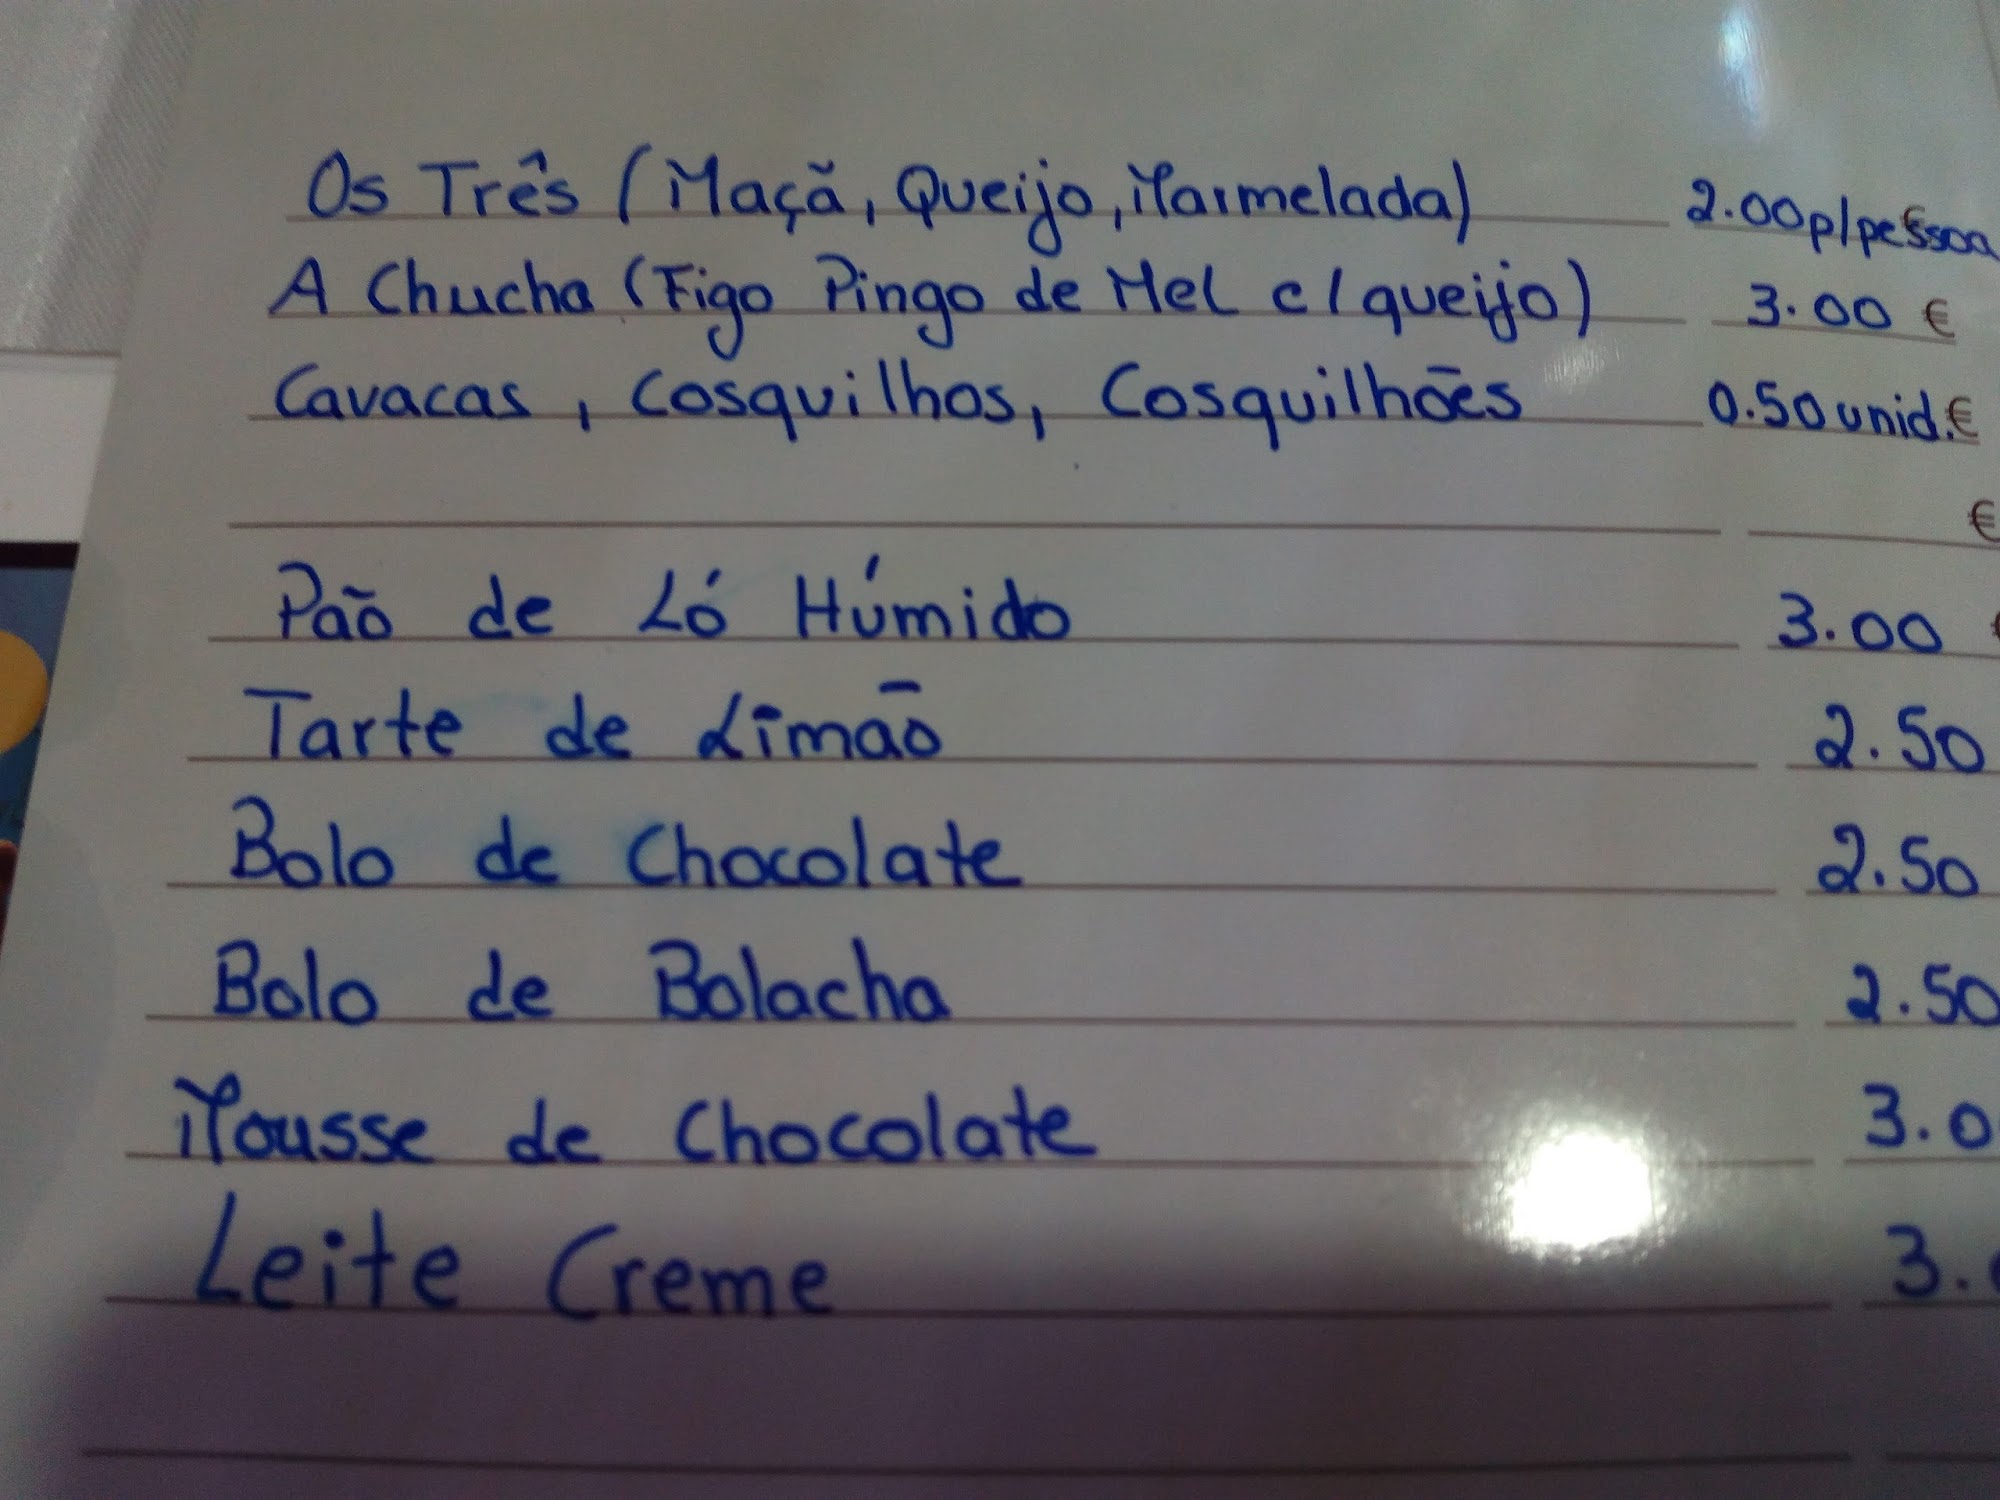 Os Três (Maçã, Queijo, Marmelada) 2.00p/pessoa €
A Chucha (Figo Pingo de Mel c/queijo) 3.00 €
Cavacas, Cosquilhos, Cosquilhões 0.50 unid. €
€
Pão de Ló Húmido 3.00 €
Tarte de Limão 2.50
Bolo de Chocolate 2.50
Bolo de Bolacha 2.50
Mousse de Chocolate 3.0
Leite Creme 3.